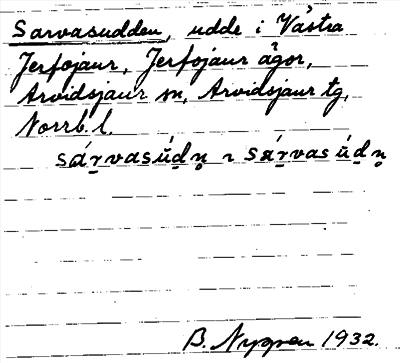 Sarvasudden, udde i Västra
Jerfojaur, Jerfojaur ägor,
Arvidsjaur sn, Arvidsjaur tg,
Norrb. l.
sárvasúdn̥ ~ sárvas údn̥
B. Nygren 1932.